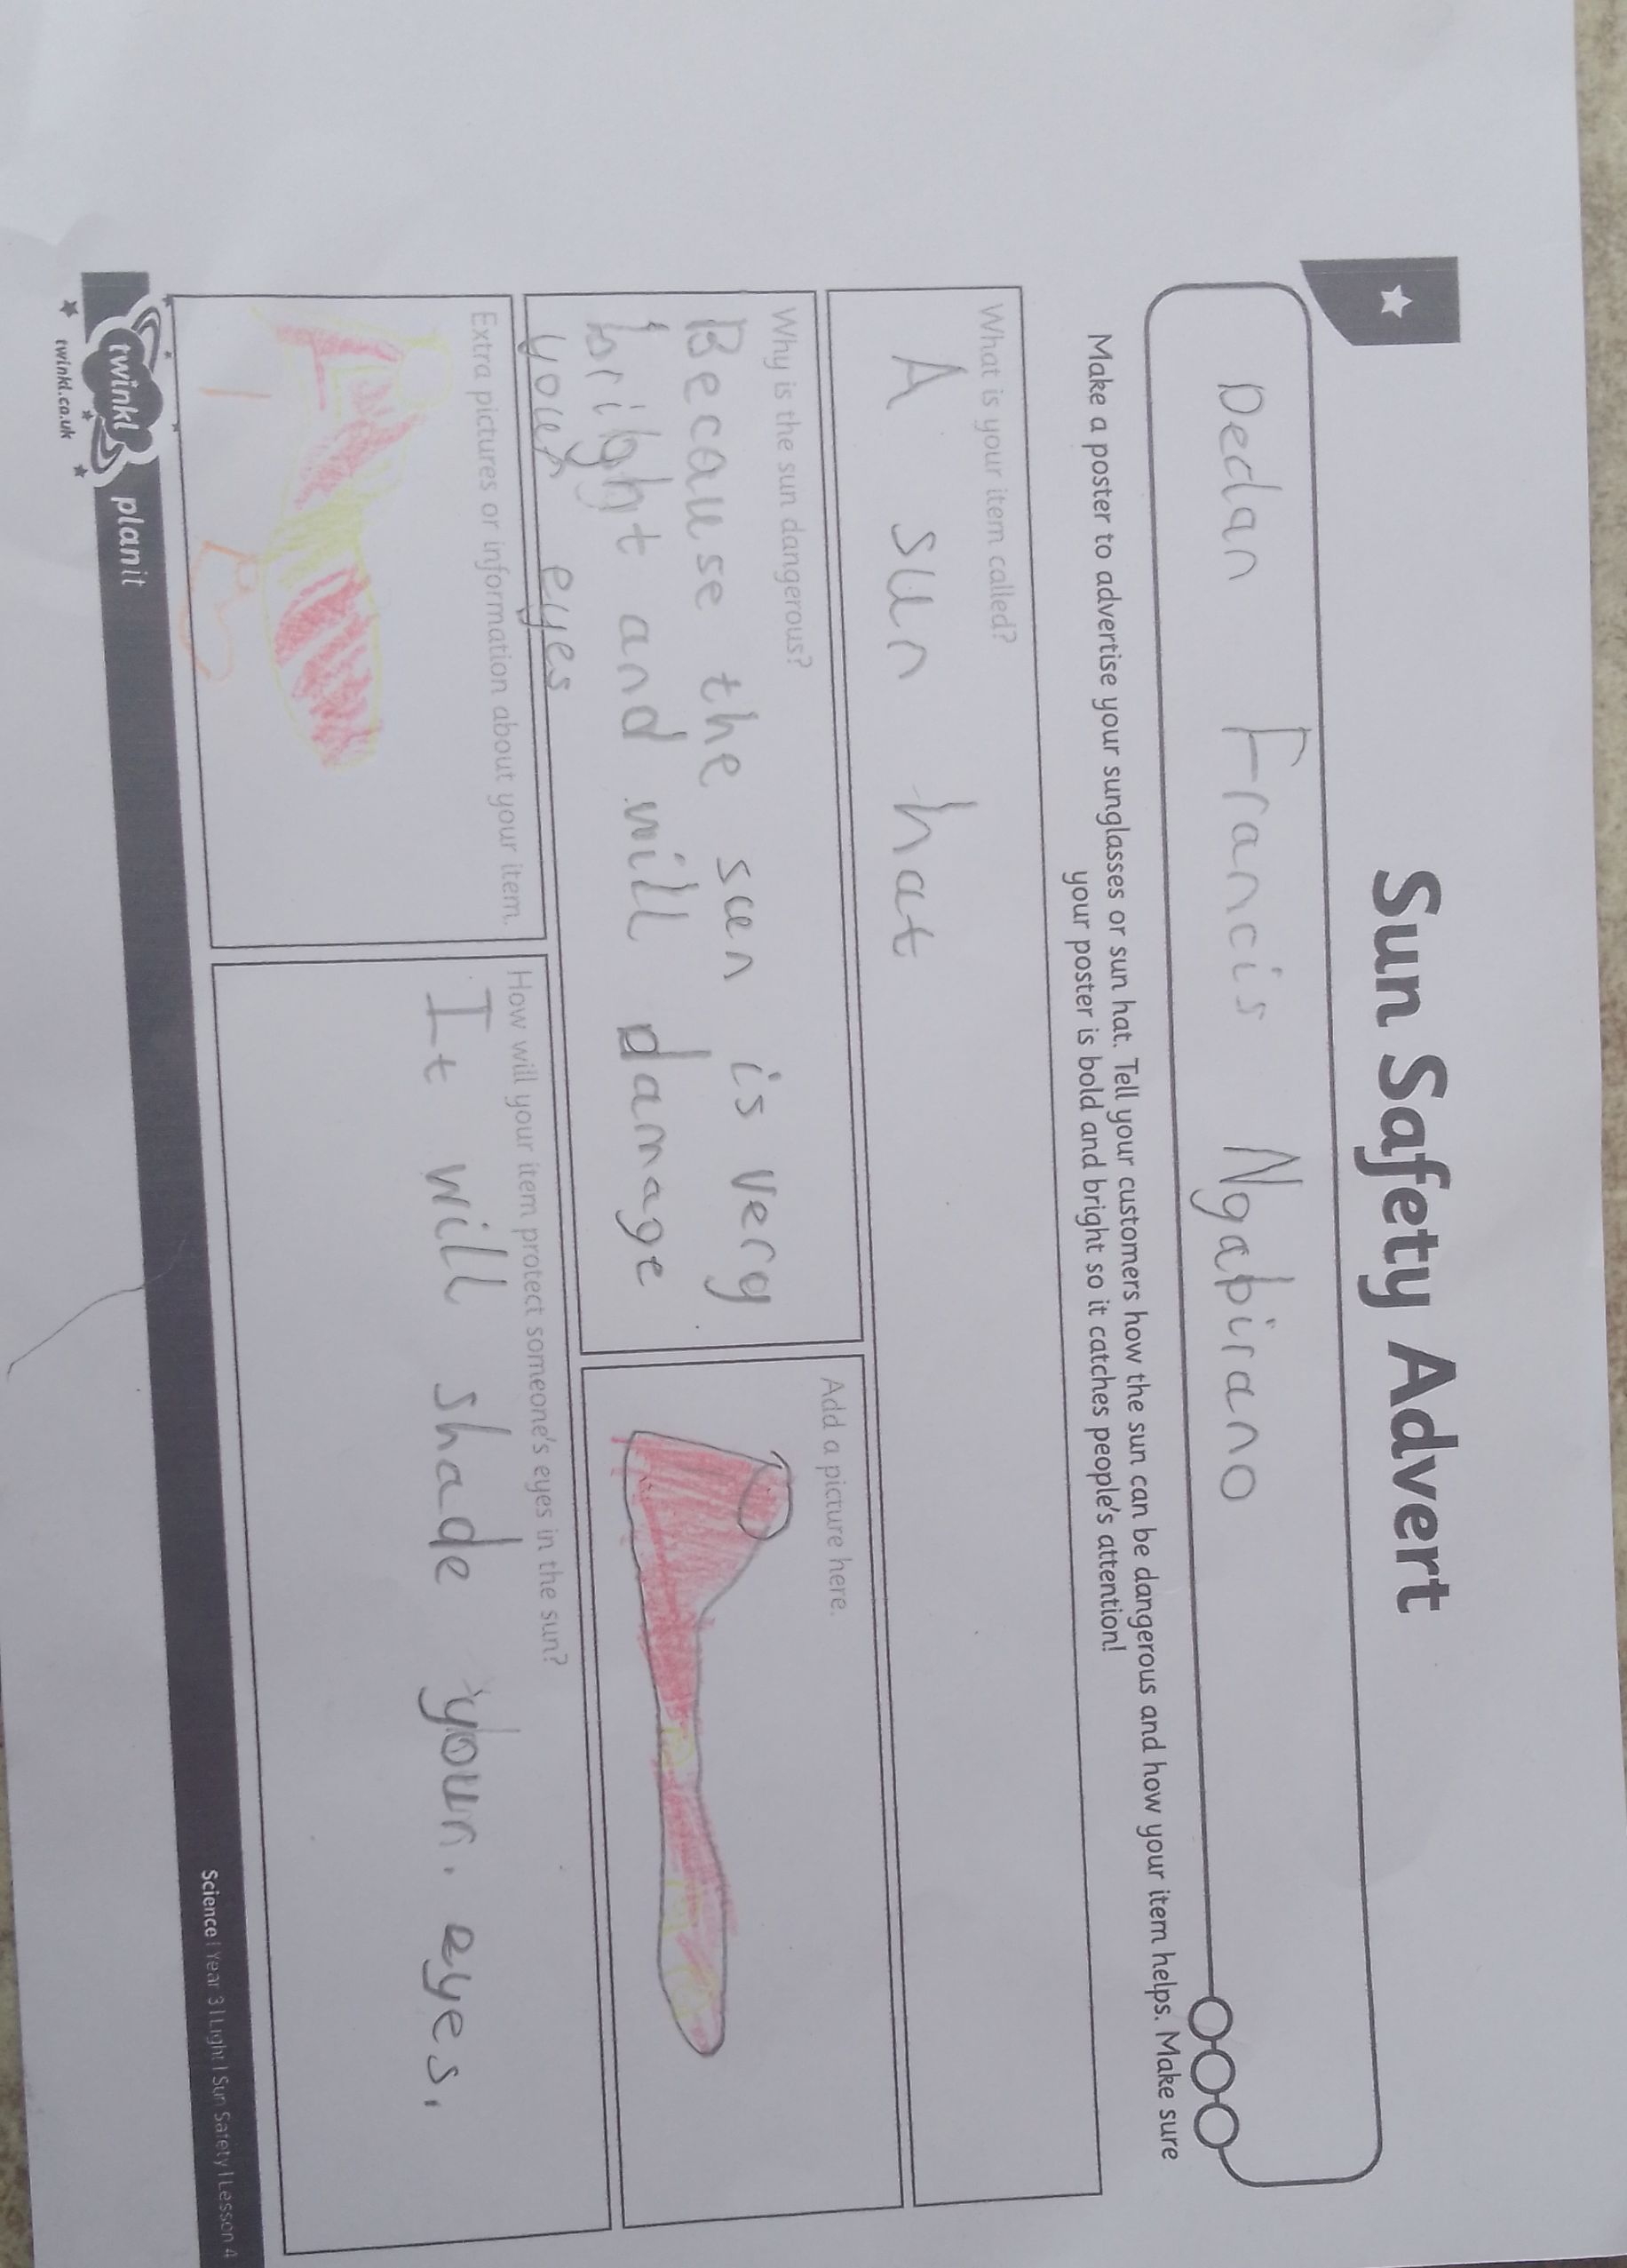 Sun Safety Advert
Dedan Francis Ngabirano
Make a poster to advertise your sunglasses or sun hat. Tell your customers how the sun can be dangerous and how your item helps. Make sure
your poster is bold and bright so it catches people's attention!
What is your item called?
A sun hat
Why is the sun dangerous?
Because the sun is very
bright and will damage
your eyes
Add a picture here.
Extra pictures or information about your item.
How will your item protect someone's eyes in the sun?
It will shade your. eyes.
Science | Year 3 | Light | Sun Safety | Lesson 4
twinkl planit
twinkl.co.uk